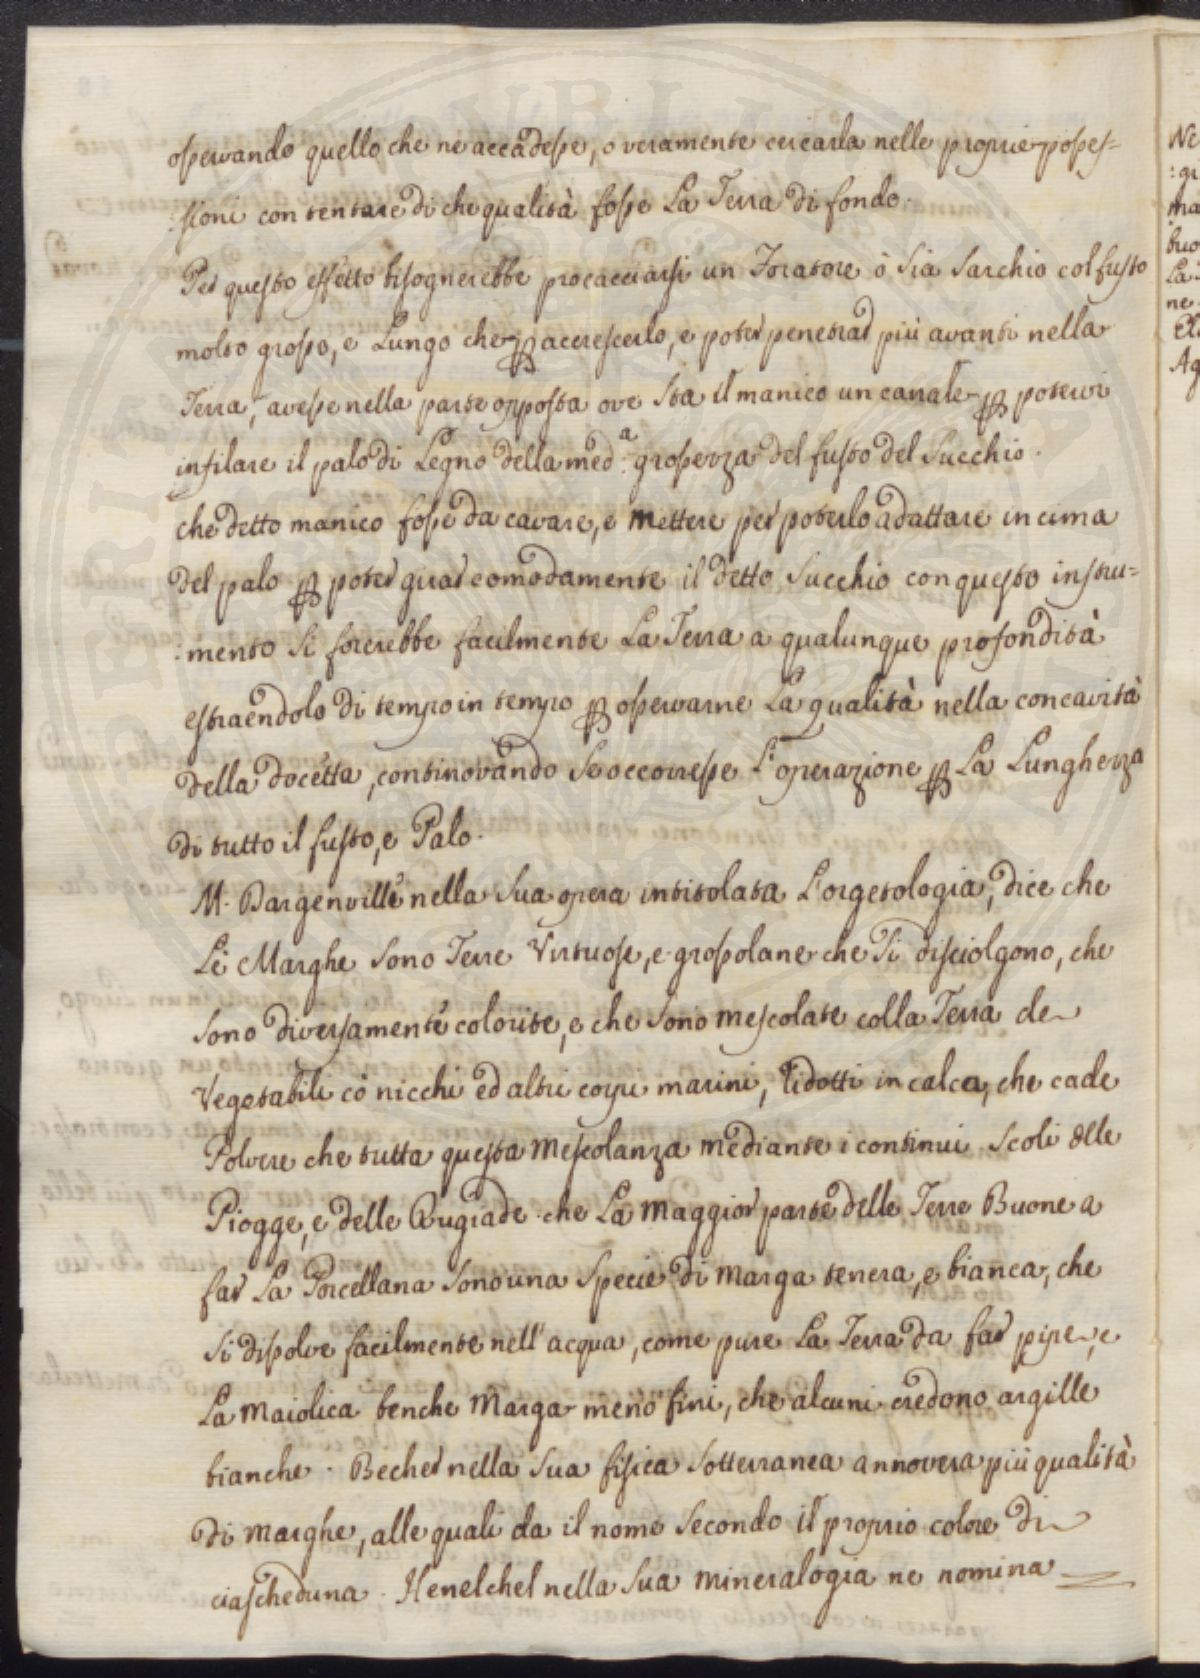 osservando quello che ne accadesse, o veramente cercarla nelle proprie posses=
:sioni con tentare di che qualità fosse La Terra di fondo.
Per questo effetto bisognerebbe procacciarsi un Foratore ò sia Sarchio col fusto
molto grosso, e Lungo che p accrescerlo, e poter penetrar più avanti nella
Terra, avesse nella parte opposta ove sta il manico un canale p potervi
infilare il palo di Legno della med.a grossezza del fusto del Succhio.
che detto manico fosse da cavare, e mettere per poterlo adattare in cima
del palo p poter girar comodamente il detto Succhio con questo instru=
:mento si forerebbe facilmente La Terra a qualunque profondità
estraendolo di tempo in tempo p osservarne La qualità nella concavità
della docetta, continovando se occorresse L'operazione p La Lunghezza
di tutto il fusto, e Palo.
M. Dargenville nella Sua opera intitolata L'orgetologia, dice che
Le Marghe sono Terre Virtuose, e grossolane che si disciolgono, che
sono diversamente colorite, e che sono mescolate colla Terra de
Vegetabili cò nicchi ed altri corpi marini, ridotti in calce, che cade
Polvere che tutta questa mescolanza mediante i continui Scoli delle
Piogge, e delle Rugiade. che La maggior parte delle Terre Buone a
far La Porcellana sono una specie di marga tenera, e bianca, che
si dissolve facilmente nell'acqua, come pure La Terra da far pipe, e
La maiolica benche Marga meno fini, che alcuni credono argille
bianche. Becher nella Sua fisica Sotterranea annovera più qualità
di marghe, alle quali da il nome Secondo il proprio colore di
ciascheduna. Henelchel nella Sua mineralogia ne nomina